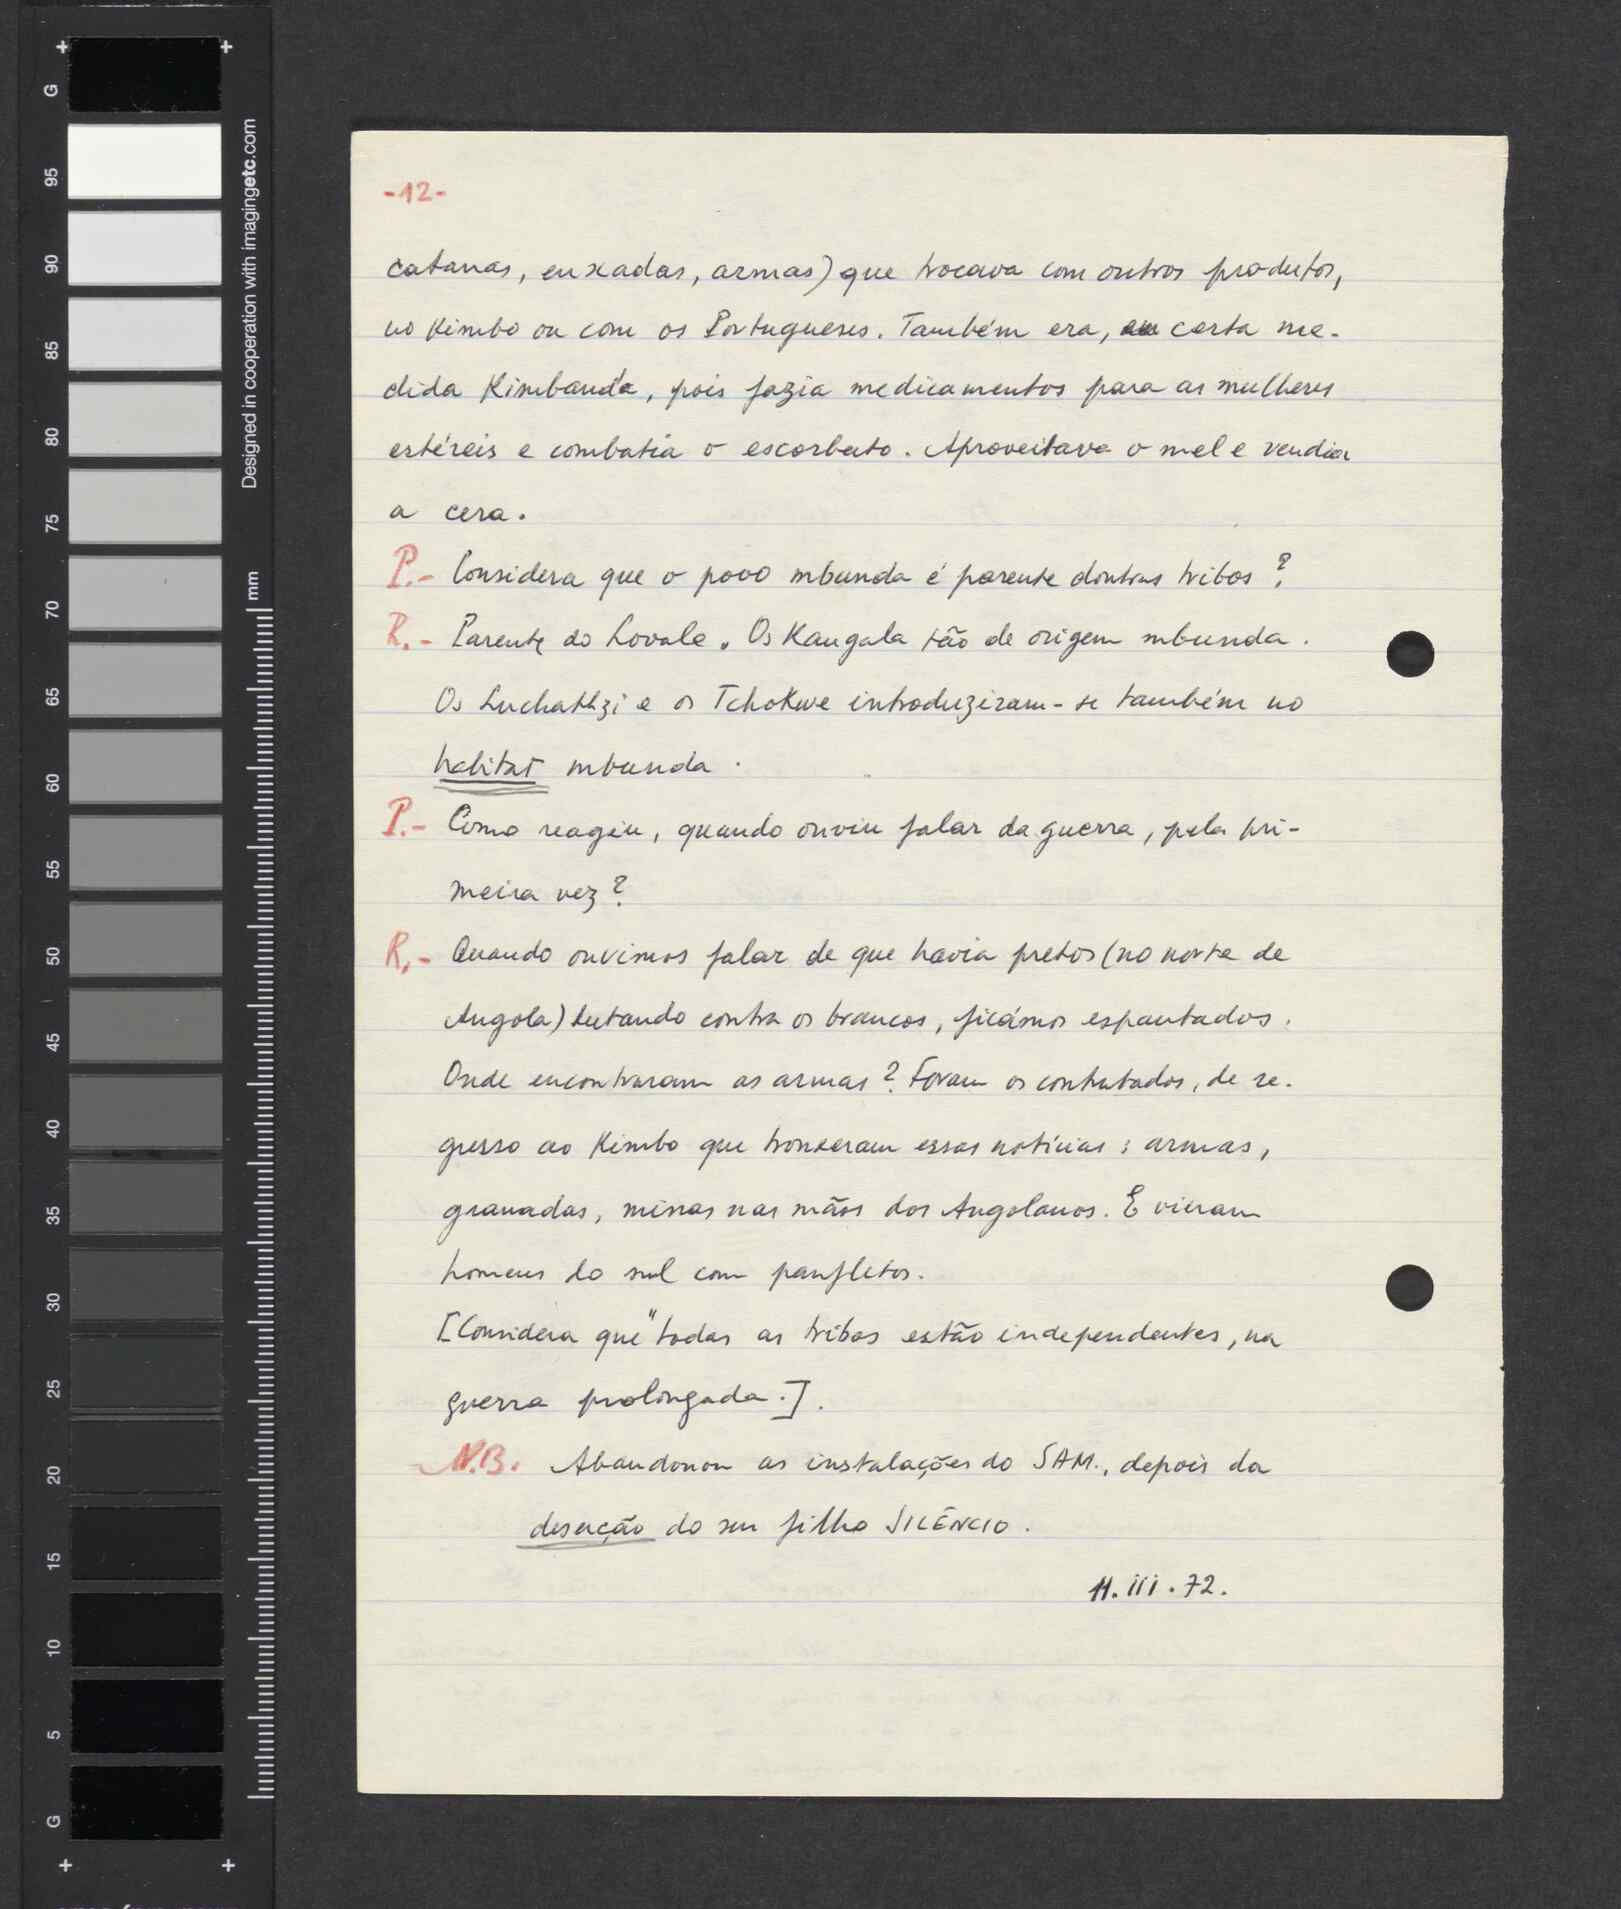 -12-
catanas, enxadas, armas) que trocava com outros produtos,
no Kimbo ou com os Portugueses. Também era, em certa me-
dida Kimbanda, pois fazia medicamentos para as mulheres
estéreis e combatia o escorbuto. Aproveitava o mel e vendia
a cera.
P.- Considera que o povo mbunda é parente doutras tribos?
R.- Parente do Lovale. Os Kangala são de origem mbunda.
Os Luchatzi e os Tchokwe introduziram-se também no
habitat mbunda.
P.- Como reagiu, quando ouviu falar da guerra, pela pri-
meira vez?
R.- Quando ouvimos falar de que havia pretos (no norte de
Angola) lutando contra os brancos, ficámos espantados.
Onde encontraram as armas? Foram os contratados, de re-
gresso ao Kimbo que trouxeram essas notícias: armas,
granadas, minas nas mãos dos Angolanos. E vieram
homens do sul com panfletos.
[Considera que "todas as tribos estão independentes, na
guerra prolongada.].
N.B. Abandonou as instalações do SAM., depois da
deserção do seu filho SILÊNCIO.
11.III.72.
G
95
90
85
80
75
70
65
60
55
50
45
40
35
30
25
20
15
10
5
G
mm
Designed in cooperation with imagingetc.com